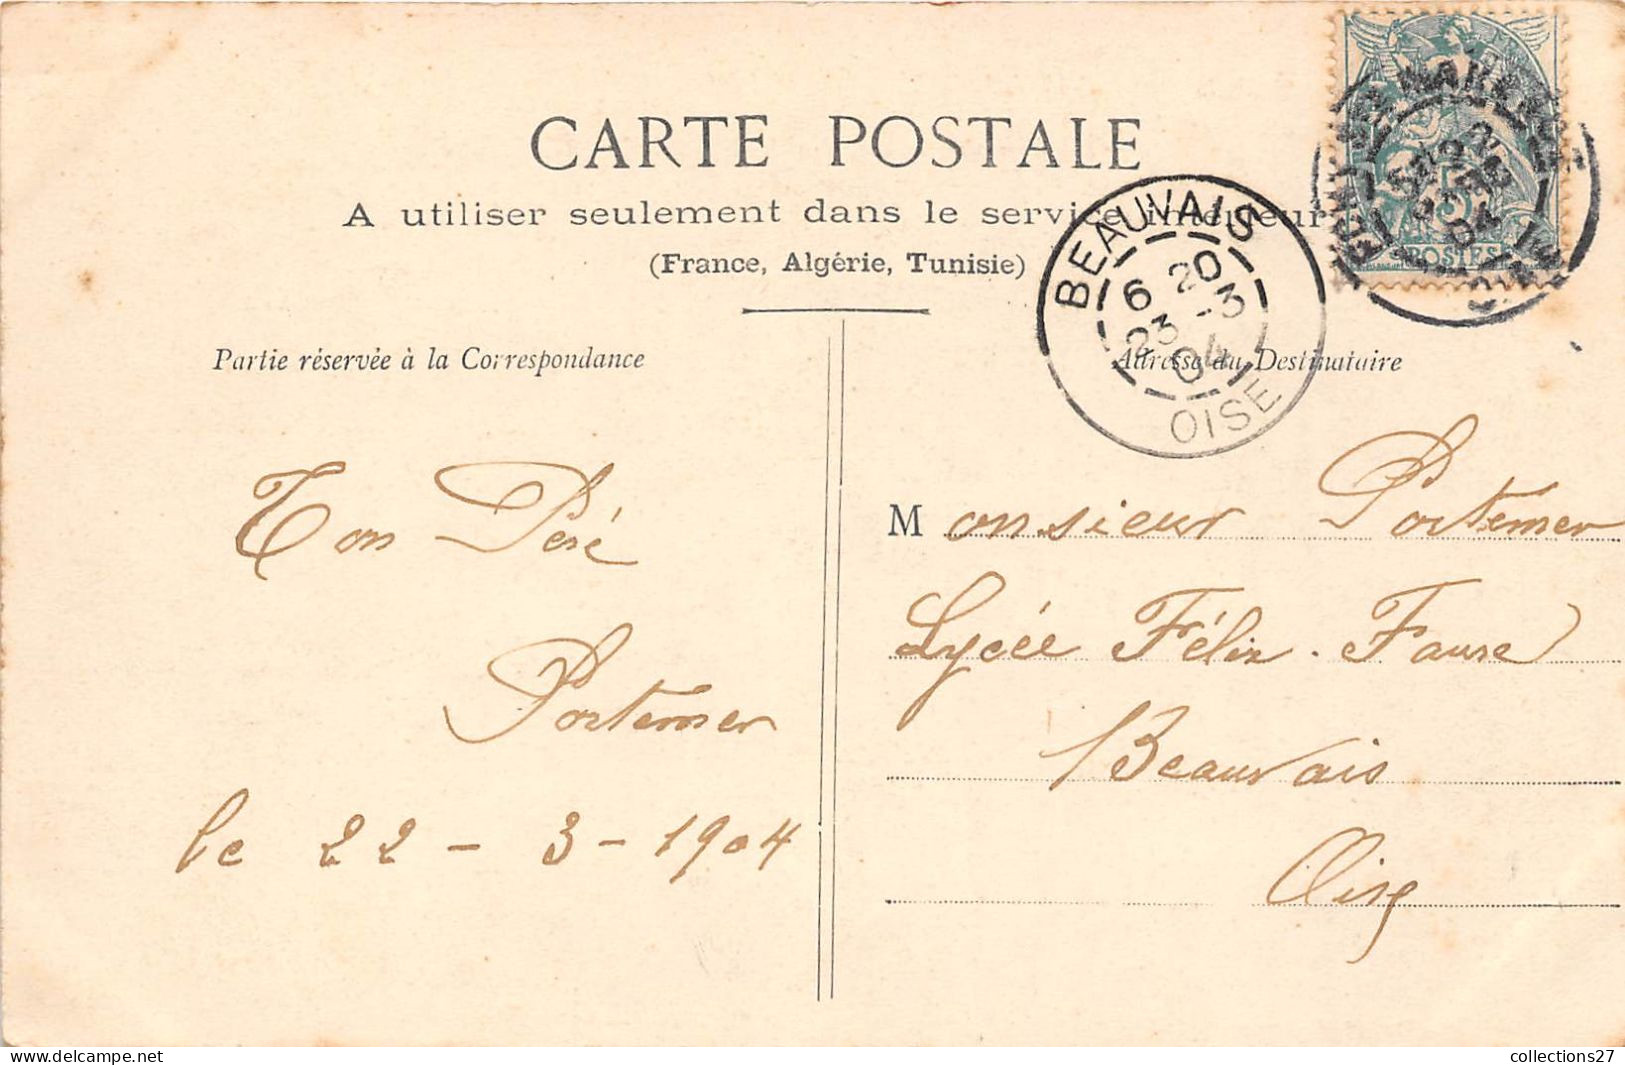 CARTE POSTALE
A utiliser seulement dans le service intérieur
(France, Algérie, Tunisie)
Partie réservée à la Correspondance
Adresse du Destinataire
BEAUVAIS
6 20
23 -3
04
OISE
5
POSTES
04
Ton Père
Portemer
le 22 - 3 - 1904
Monsieur Portemer
Lycée Félix-Faure
Beauvais
Oise
collections27